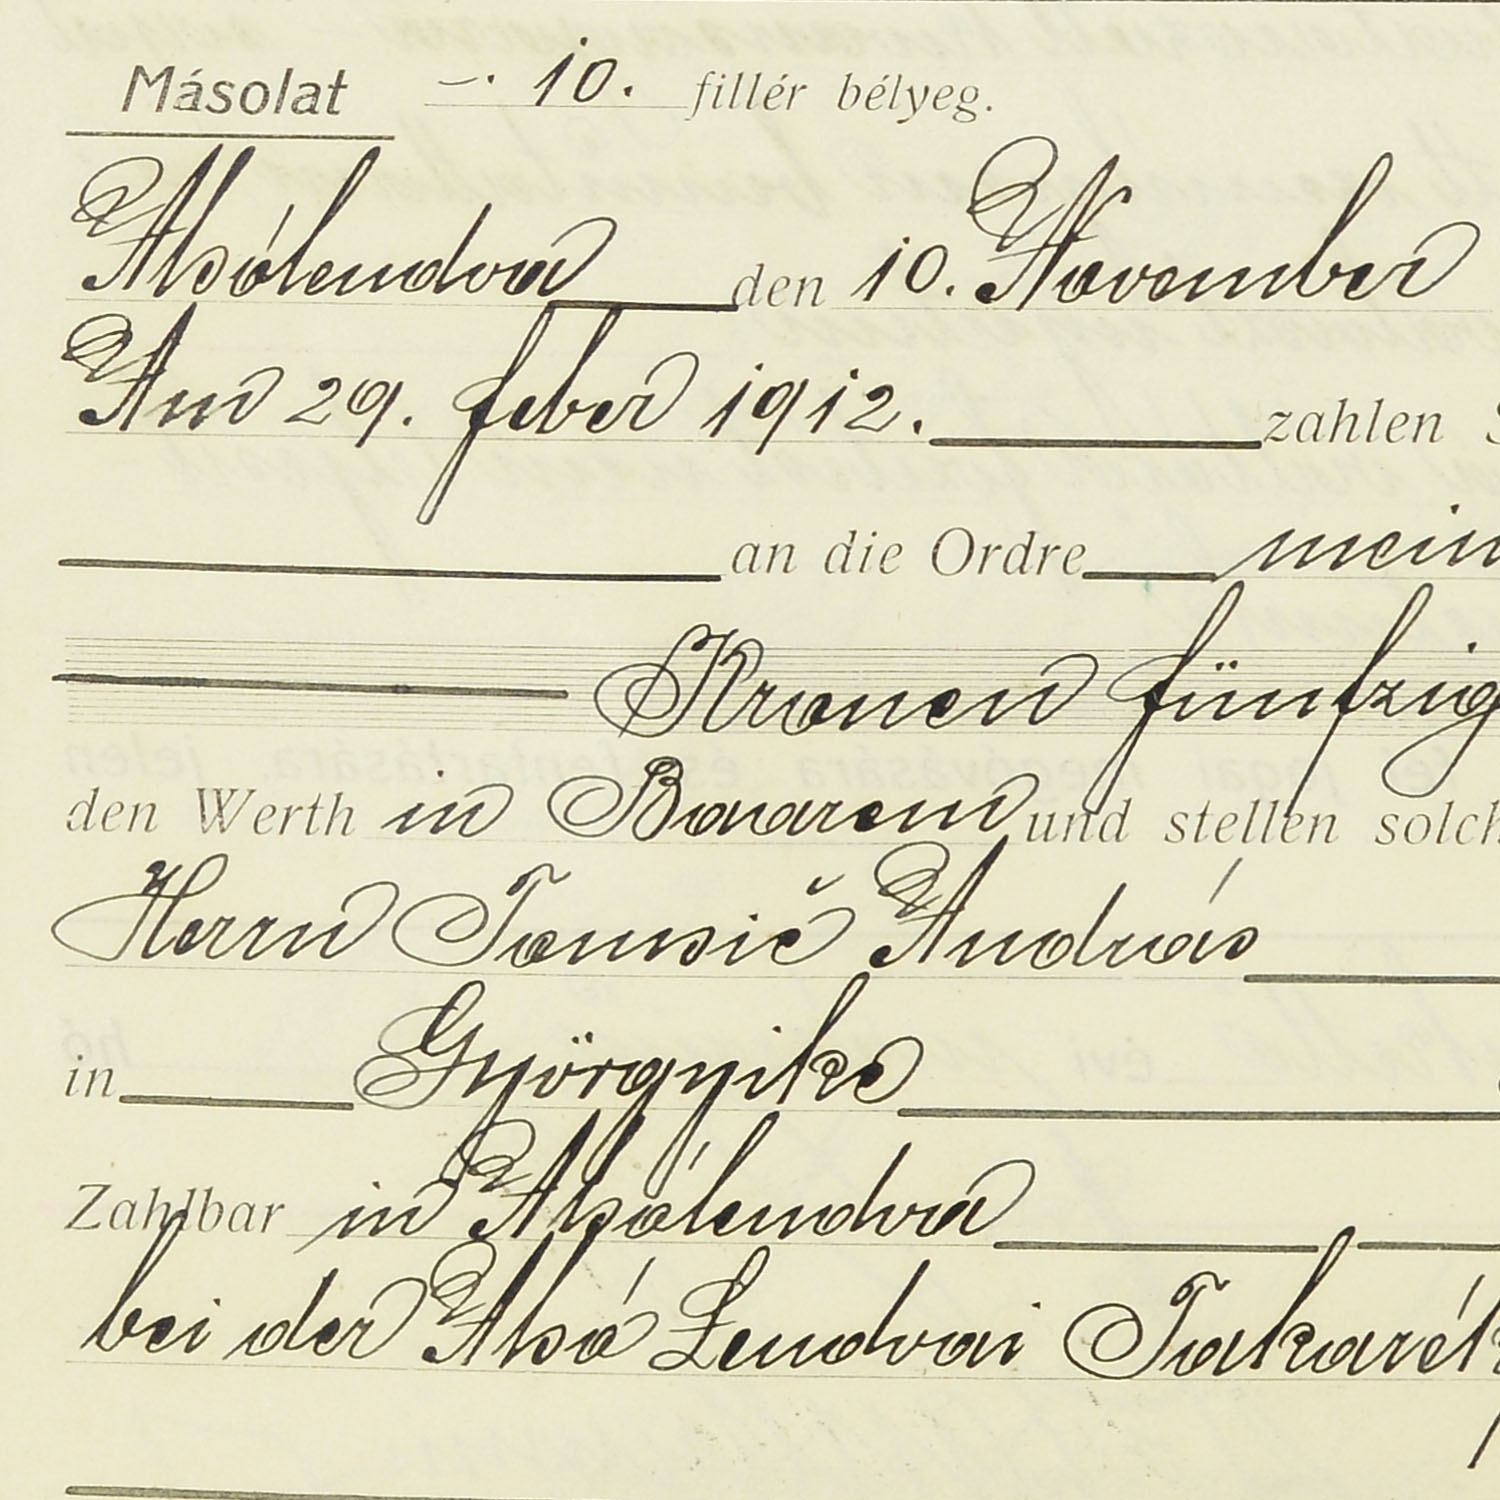 Másolat —. 10. fillér bélyeg.
Alsólendva den 10. November
Am 29. feber 1912. zahlen
an die Ordre mein
Kronen fünfzig
den Werth in Baarem und stellen solch
Herrn Tomsič András
in Györgyike
Zahlbar in Alsólendva
bei der Alsó Lendvai Takarék